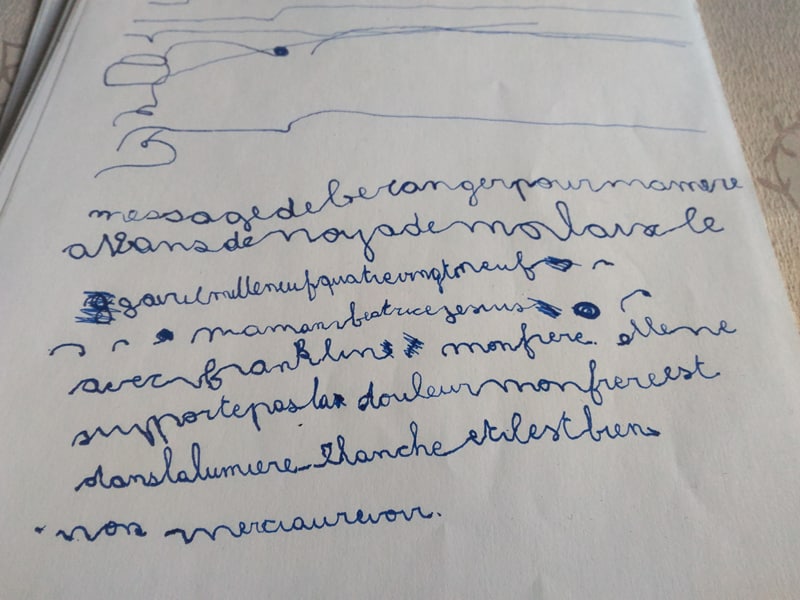 messagedeberangerpourmamere
a12ansdenoyadede morlaix le
9avrilmilleneufquatrevingtneuf
mamanbeatricejesus
avecfranklin monfrere. ellene
supportepasla douleurmonfrereest
danslalumiere blanche etilestbien
non merciaurevoir.